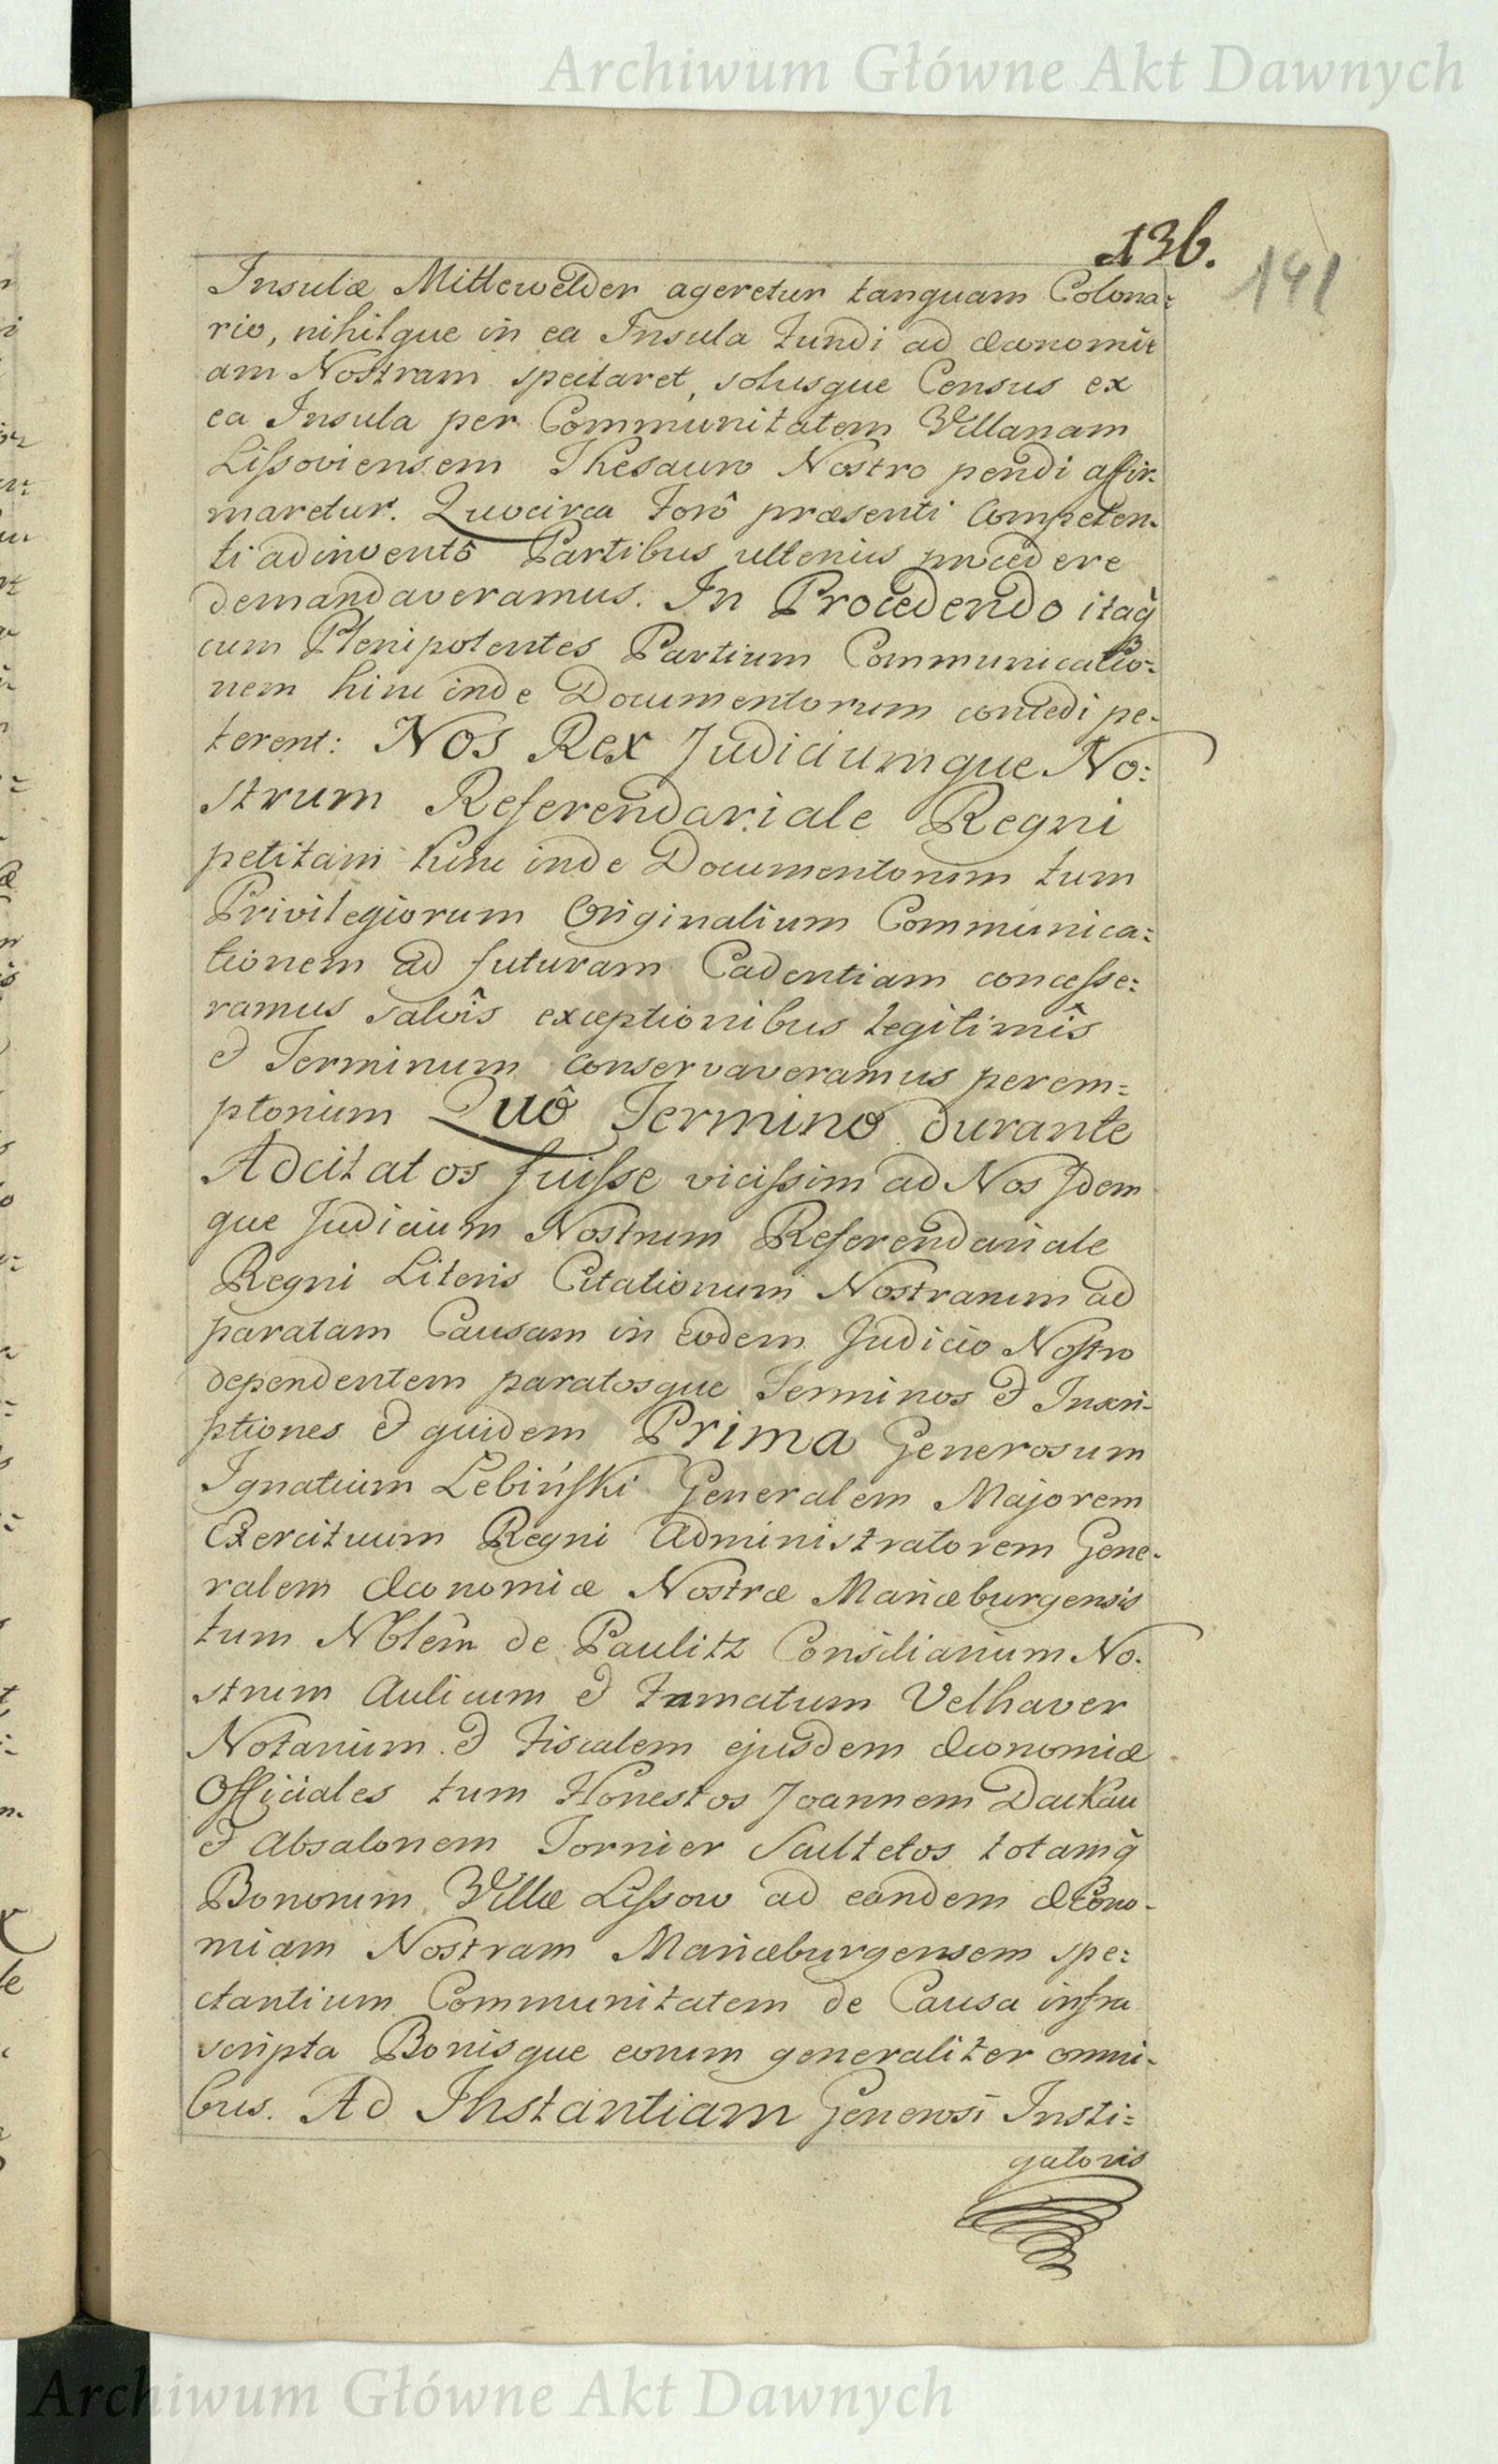 Archiwum Główne Akt Dawnych
136.
141
Insulæ Mittewelder ageretur tanquam Colona:
rio, nihilque in ea Insula Fundi ad Œconomi:
am Nostram spectaret, solusque Census ex
ea Insula per Communitatem Villanam
Lissoviensem Thesauro Nostro pendi affir-
maretur. Quocirca Forô præsenti Competen-
ti adinventô Partibus ulterius procedere
demandaveramus. In Procedendo itaq̃
cum Plenipotentes Partium Communicatio-
nem hinc inde Documentorum concedi pe-
terent: Nos Rex Judiciumque No:
strum Referendariale Regni
petitam hinc inde Documentorum tum
Privilegiorum Originalium Communica:
tionem ad futuram Cadentiam concesse:
ramus salvîs exceptionibus legitimîs
et Terminum conservaveramus perem=
ptorium Quô Termino durante
Adcitatos fuisse vicissim ad Nos Idem
que Judicium Nostrum Referendariale
Regni Literis Citationum Nostrarum ad
paratam Causam in eodem Judicio Nostro
dependentem paratosque Terminos et Inscri-
ptiones et quidem Prima Generosum
Ignatium Lebiński Generalem Majorem
Exercituum Regni Administratorem Gene-
ralem Œconomiæ Nostræ Mariæburgensis
tum Nobl̃em de Paulitz Consiliarium No-
strum Aulicum et Famatum Velhaver
Notarium et Fiscalem ejusdem Œconomiæ
Officiales tum Honestos Joannem Dackau
et Absalonem Tornier Scultetos totamq̃
Bonorum Villæ Lissow ad eandem Œcono-
miam Nostram Mariæburgensem spe:
ctantium Communitatem de Causa infra
scripta Bonisque eorum generaliter omni-
bus. Ad Instantiam Generosi Insti=
gatoris
Archiwum Główne Akt Dawnych